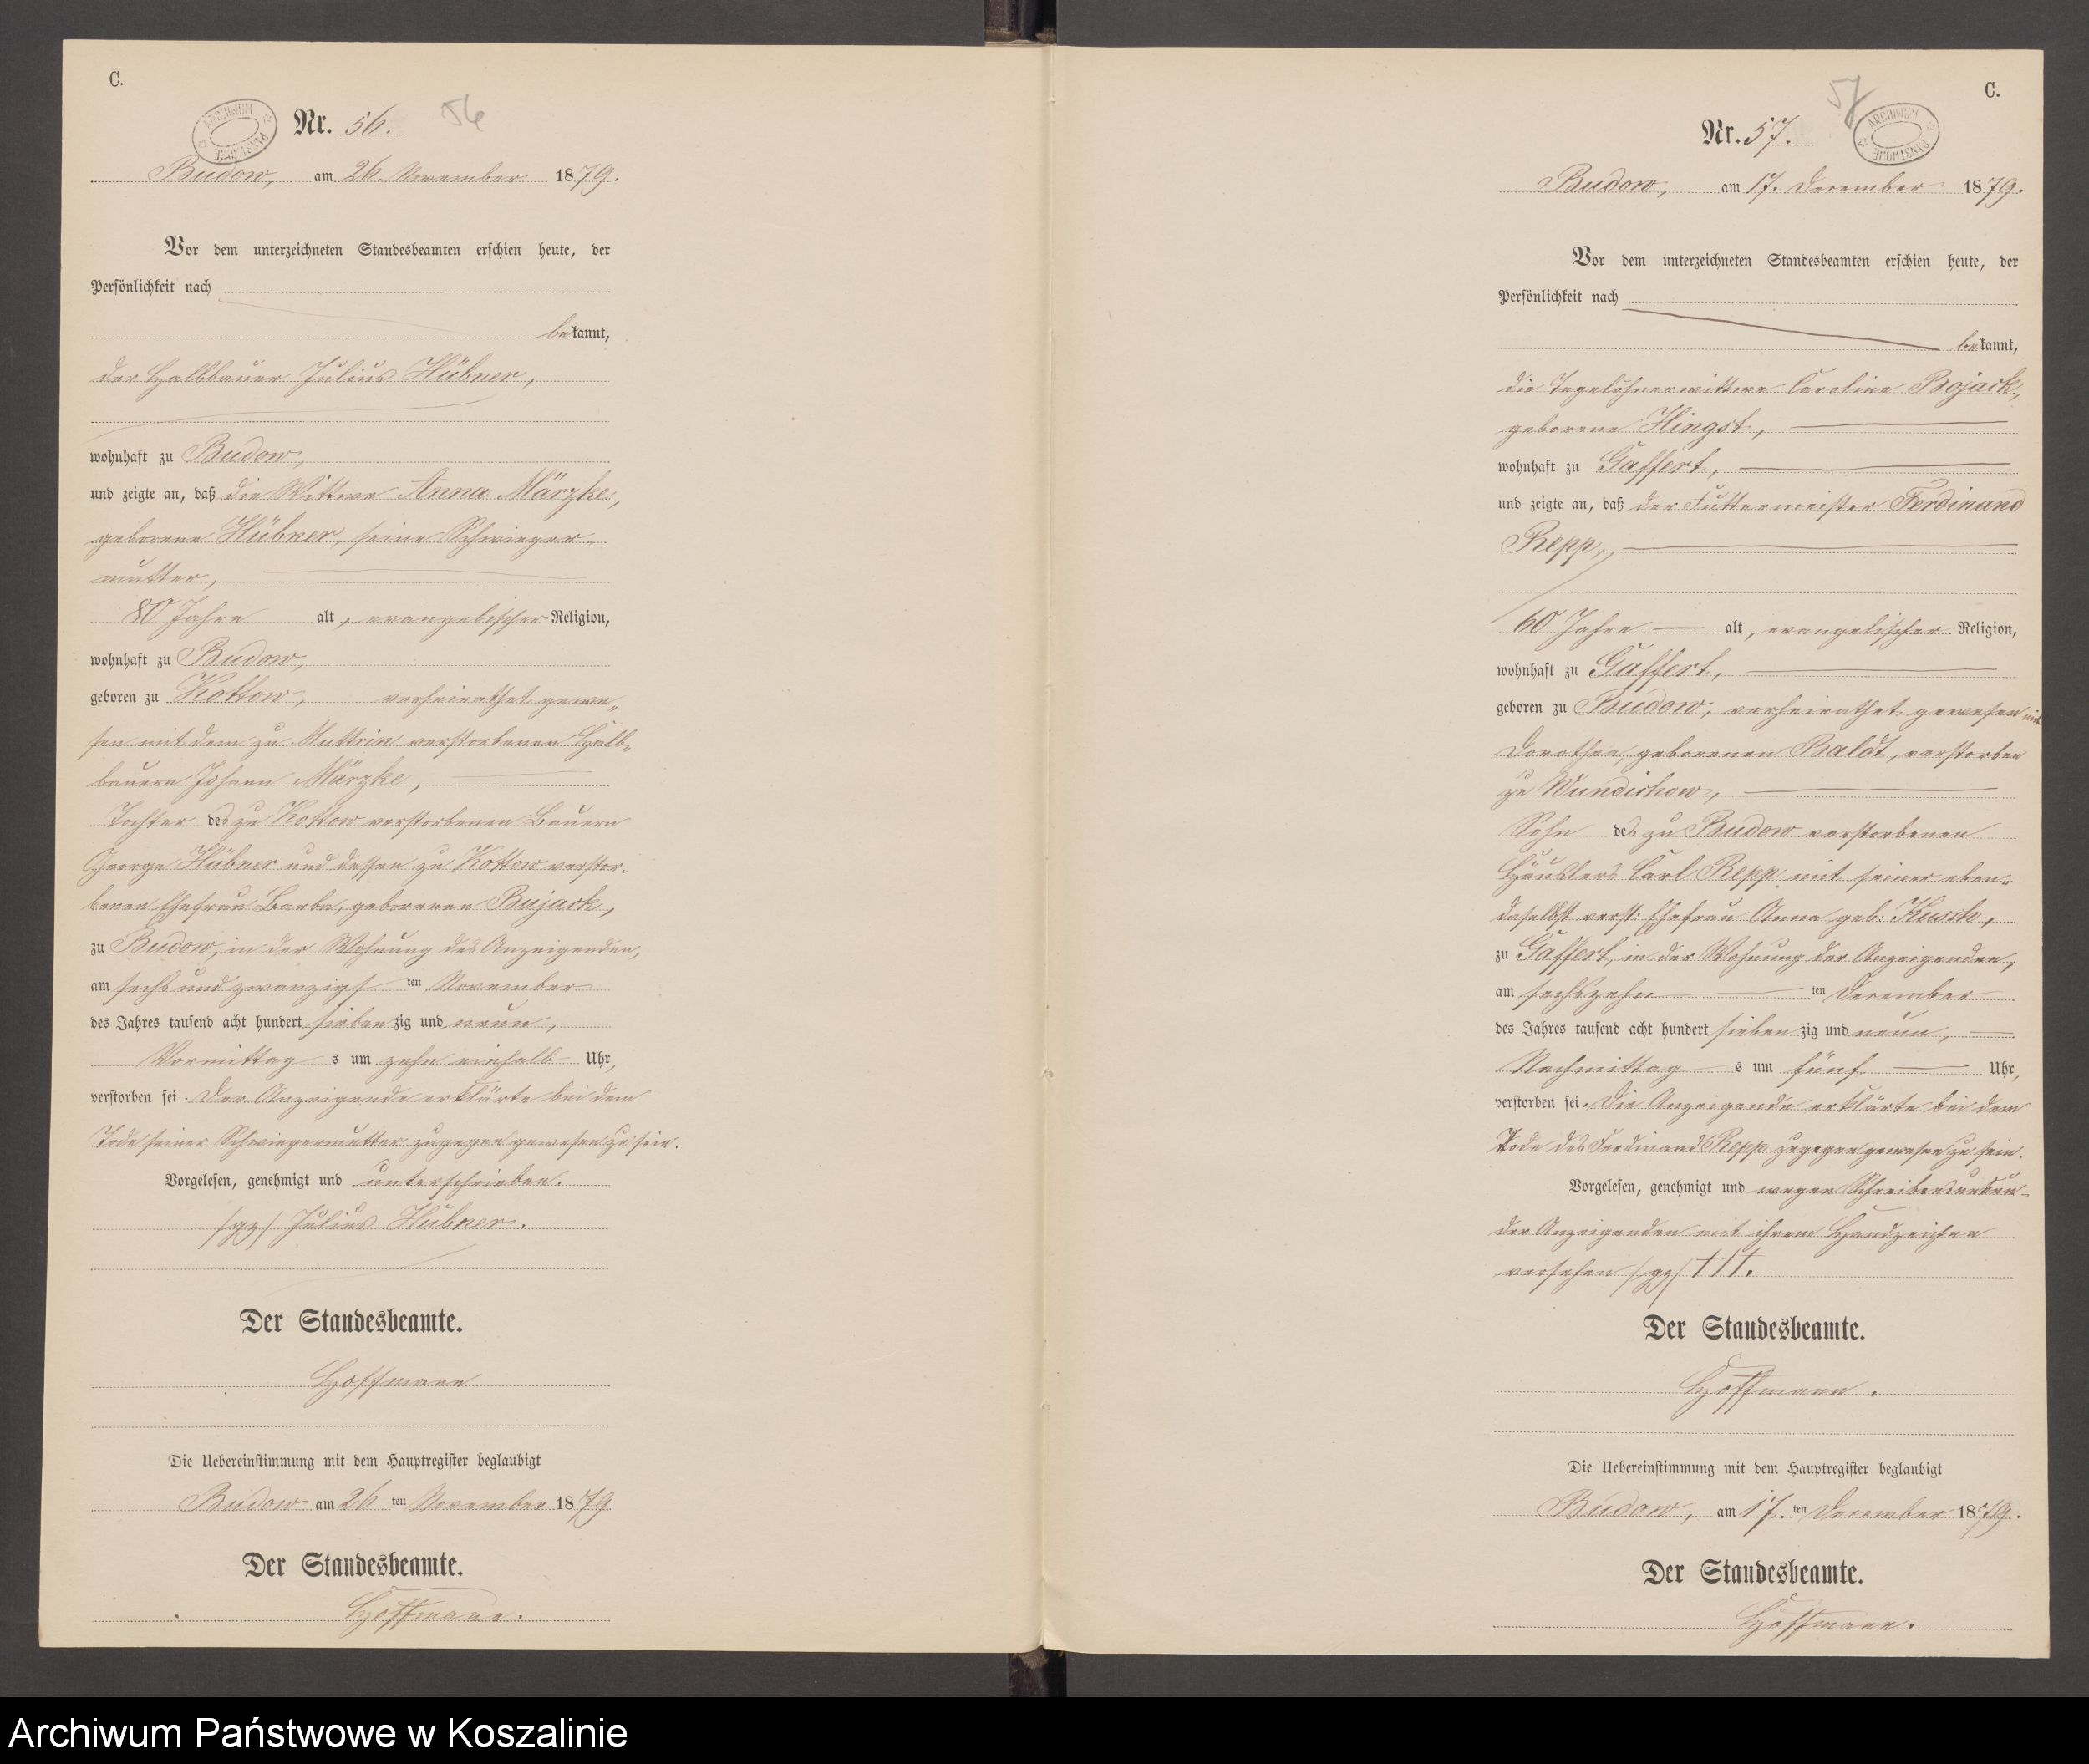 C.
Nr. 56. 56
ARCHIWUM PAŃSTWOWE
Budow, am 26. November 1879.
Vor dem unterzeichneten Standesbeamten erschien heute, der
Persönlichkeit nach
bekannt,
der Halbbauer Julius Hübner,
wohnhaft zu Budow,
und zeigte an, daß die Wittwe Anna Märzke,
geborene Hübner, seine Schwieger-
mutter,
80 Jahre alt, evangelischer Religion,
wohnhaft zu Budow,
geboren zu Kottow, verheirathet gewe-
sen mit dem zu Muttrin verstorbenen Halb-
bauern Johann Märzke,
Tochter des zu Kottow verstorbenen Bauern
George Hübner und dessen zu Kottow verstor-
benen Ehefrau Barba, geborenen Bujack,
zu Budow, in der Wohnung des Anzeigenden,
am sechs und zwanzigsten November
des Jahres tausend acht hundert siebenzig und neun,
Vormittags um zehn einhalb Uhr,
verstorben sei. Der Anzeigende erklärte bei dem
Tode seiner Schwiegermutter zugegen gewesen zu sein.
Vorgelesen, genehmigt und unterschrieben.
/gz/ Julius Hübner.
Der Standesbeamte.
Hoffmann
Die Uebereinstimmung mit dem Hauptregister beglaubigt
Budow am 26 ten November 1879
Der Standesbeamte.
Hoffmann.
C.
57
Nr. 57.
ARCHIWUM PAŃSTWOWE
Budow, am 17. December 1879.
Vor dem unterzeichneten Standesbeamten erschien heute, der
Persönlichkeit nach
bekannt,
die Tagelöhnerwittwe Caroline Bojack,
geborene Hingst,
wohnhaft zu Gaffert,
und zeigte an, daß der Futtermeister Ferdinand
Repp,
60 Jahre alt, evangelischer Religion,
wohnhaft zu Gaffert,
geboren zu Budow, verheirathet gewesen mit
Dorothea, geborenen Baldt, verstorben
zu Wundichow,
Sohn des zu Budow verstorbenen
Häuslers Carl Repp mit seiner eben-
daselbst verst: Ehefrau Anna, geb: Kusch,
zu Gaffert, in der Wohnung der Anzeigenden,
am sechszehn ten December
des Jahres tausend acht hundert siebenzig und neun,
Nachmittags um fünf Uhr,
verstorben sei. Die Anzeigende erklärte bei dem
Tode des Ferdinand Repp zugegen gewesen zu sein.
Vorgelesen, genehmigt und wegen Schreibensunkun-
der Anzeigenden mit ihrem Handzeichen
versehen /gz/ †††.
Der Standesbeamte.
Hoffmann.
Die Uebereinstimmung mit dem Hauptregister beglaubigt
Budow, am 17. ten December 1879.
Der Standesbeamte.
Hoffmann.
Archiwum Państwowe w Koszalinie